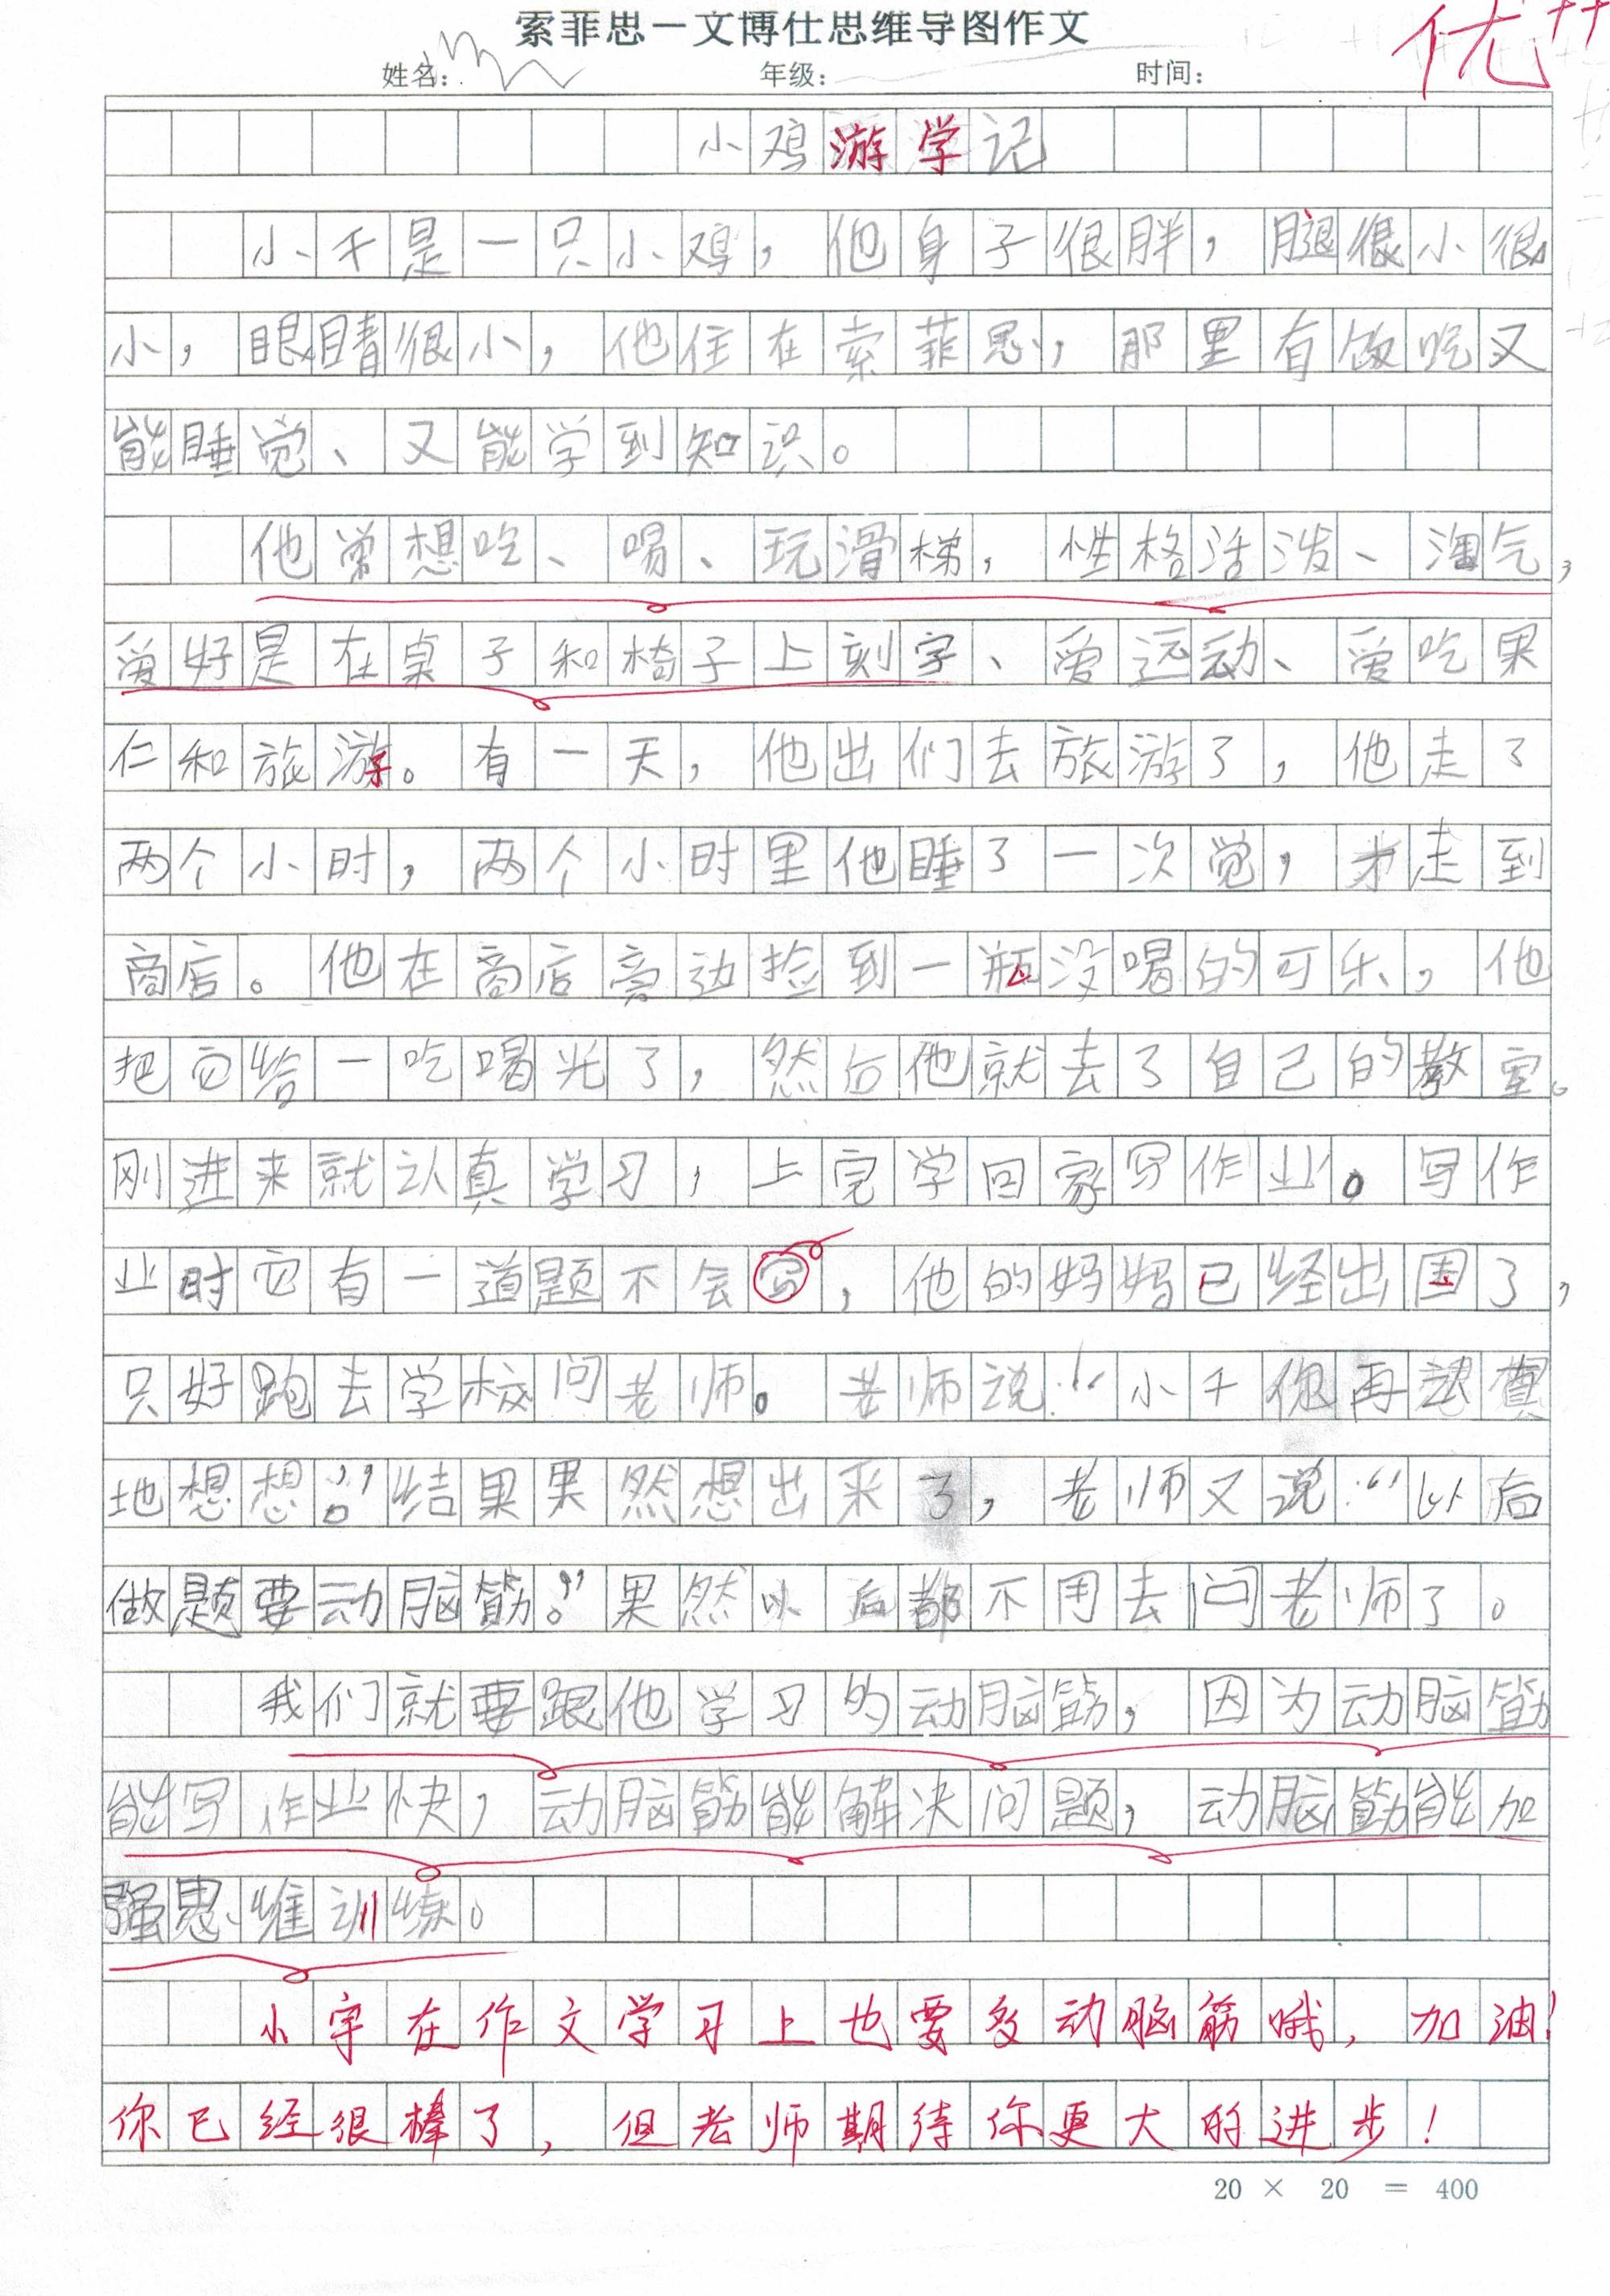 索菲思一文博仕思维导图作文
优++
姓名: 年级: 时间:
小鸡游学记
小千是一只小鸡，他身子很胖，腿很小很
小，眼睛很小，他住在索菲思，那里有饭吃又
能睡觉、又能学到知识。
他常想吃、喝、玩滑梯，性格活泼、淘气，
爱好是在桌子和椅子上刻字、爱运动、爱吃果
仁和旅游。有一天，他出们去旅游了，他走了
两个小时，两个小时里他睡了一次觉，才走到
商店。他在商店旁边捡到一瓶没喝的可乐，他
把它给一吃喝光了，然后他就去了自己的教室。
刚进来就认真学习，上完学回家写作业。写作
业时它有一道题不会写，他的妈妈已经出国了，
只好跑去学校问老师。老师说：“小千你再认真
地想想。”结果果然想出来了，老师又说：“以后
做题要动脑筋。”果然以后都不用去问老师了。
我们就要跟他学习的动脑筋，因为动脑筋
能写作业快，动脑筋能解决问题，动脑筋能加
强思维训练。
小宇在作文学习上也要多动脑筋哦，加油！
你已经很棒了，但老师期待你更大的进步！
20 × 20 = 400